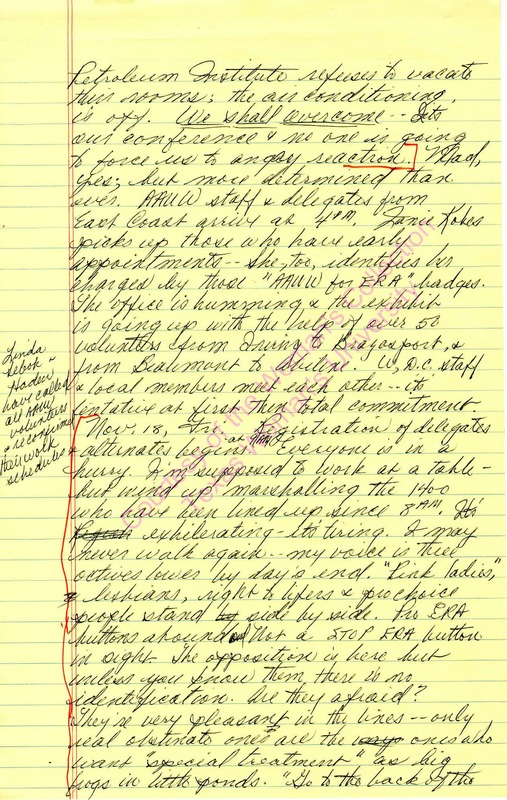 Petroleum Institute refuses to vacate
their rooms; the air conditioning
is off. We shall overcome -- Its
our conference & no one is going
to force us to angry reaction. Mad,
yes; but more determined than
ever. AAUW staff & delegates from
East Coast arrive at 4 PM. Janie
picks up those who have early
appointments -- she, too, identifies her
charges by those "AAUW for ERA" badges.
The office is humming & the exhibit
is going up with the help of over 50
volunteers from Irving to Brazosport, &
from Beaumont to Abilene. W, D.C. staff
& local members meet each other -- its
tentative at first then total commitment.
Linda
&
have called
all
volunteers
& reconfirmed
their work
schedules
Nov. 18, Fri. Registration of delegates
& alternates begins at Everyone is in a
hurry. I'm supposed to work at a table -
but wind up marshalling the 1400
who have been lined up since 8 AM. It's
exhilerating - its tiring. I may
never walk again -- my voice is three
octives lower by day's end. "Pink ladies",
lesbians, right to lifers & pro choice
people stand by side by side. Pro ERA
buttons abound Not a STOP ERA button
in sight. The opposition is here but
unless you know them there is no
identification. Are they afraid?
They're very pleasant in the lines -- only
real obstinate ones are the very ones who
want "special treatment" as big
frogs in little ponds. "Go to the back of the
Courtesy of the Woman's Collection
Texas Woman's University